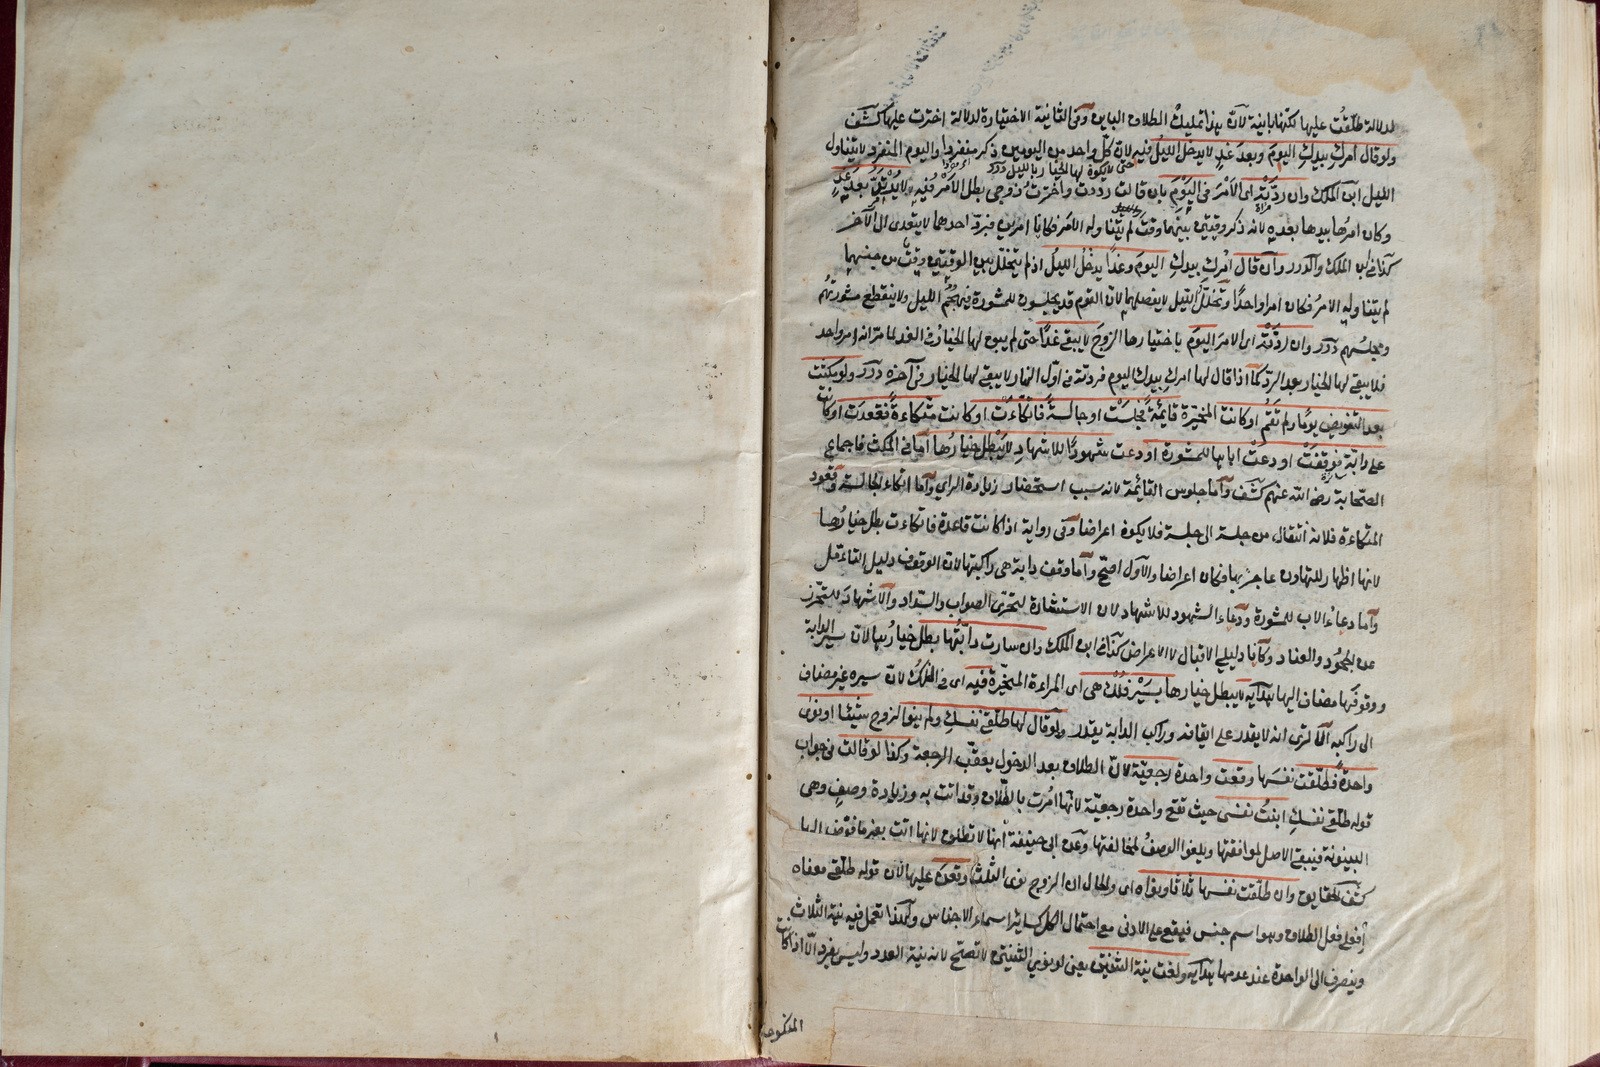 لدلالة طلّقت عليها لكنها باينة لانّ بهذا تمليك الطلاق الباين وفى الثانية الاختيارة لدلالة اخترت عليها كشف
ولو قال امرك بيدك اليوم وبعد غد لا يدخل الليل فيه لانّ كلّ واحد من اليومين ذكر منفردا واليوم المنفرد لا يتناول
حتى لا يكون لها الخيار بالليل درر
الليل ابن الملك وان ردّته اى الامر فى اليوم بان قالت رددت واخترت زوجى بطل الامر فيه لا يرتدّ بعد غد
وكان امرها بيدها بعده لانه ذكر وقتين بينهما وقت لم يتناوله الامر فكانا امرين فبردّ احدهما لا يتعدى الى الآخر
كذا فى ابن الملك والدرر وان قال امرك بيدك اليوم وغدا يدخل الليل اذ لم يتخلل بين الوقتين وقت من جنسهما
لم يتناوله الامر فكان امرا واحدا وتخلل الليل لا يفصلهما لان القوم قد يجلسون للمشورة فيهجم الليل ولا ينقطع مشورتهم
ومجلسهم درر وان ردّته اى الامر اليوم باختيارها الزوج لا يبقى غدا حتى لم يبق لها الخيار فى الغد لما مرّ انه امر واحد
فلا يبقى لها الخيار بعد الردّ كما اذا قال لها امرك بيدك اليوم فردّته فى اوّل النهار لا يبقى لها الخيار فى آخره درر ولو مكثت
بعد التفويض يوما ولم تقم او كانت المخيّرة قائمة فجلست او جالسة فاتكاءت او كانت متكاءة فقعدت او كانت
على دابّة فوقفت او دعت اباها للمشورة او دعت شهودا للاشهاد لا يبطل خيارها اما فى المكث فاجماع
الصّحابة رضى الله عنهم كشف واما جلوس القائمة لانه سبب استحضار زيادة الراى واما اتكاء الجالسة وقعود
المتكاءة فلانه انتقال من جلسة الى جلسة فلا يكون اعراضا وفى رواية اذا كانت قاعدة فاتكاءت بطل خيارها
لانها اظهار للتهاون عاجز بها فكان اعراضا والاوّل اصحّ واما وقف دابة هى راكبتها لان الوقوف دليل التاءمّل
وآما دعاء الاب للمشورة ودعاء الشهود للاشهاد لان الاستشارة لتحرّى الصواب والسّداد والاشهاد للتحرّز
عن الجحود والعناد وكانا دليلى الاقبال لا الاعراض كذا فى ابن الملك وان سارت دابّتها بطل خيارها لان سير الدابة
ووقوفها مضاف اليها هدايه لا يبطل خيارها بسير فلك هى اى المراءة المخيّرة فيه اى فى الفلك لانّ سيره غير مضاف
الى راكبه الا ترى انه لا يقدر على ايقافه وراكب الدابة يقدر ولو قال لها طلّقى نفسك ولم ينو الزوج شيئا او نوى
واحدة فطلّقت نفسها وقعت واحدة رجعيّة لانّ الطلاق بعد الدخول يعقّب الرجعة وكذا لو قالت فى جواب
قوله طلّقى نفسك ابنت نفسى حيث تقع واحدة رجعيّة لانها امرت بالطّلاق وقد اتت به وزيادة وصف وهى
البينونة فيبقى الاصل لموافقتها ويلغو الوصف لمخالفتها وعن ابى حنيفة انها لا تطلق لانها اتت بغير ما فوّض اليها
كشف الحقايق وان طلّقت نفسها ثلاثا ونواه اى والحال ان الزوج نوى الثلث وقعن عليها لان قوله طلّقى معناه
افعلى فعل الطلاق وهو اسم جنس فيقع على الادنى مع احتمال الكل كسائر اسماء الاجناس ولهذا تعمل فيه نية الثلاث
وينصرف الى الواحدة عند عدمها هدايه ولغت نية الثنتين يعنى لو نوى الثنتين لا تصحّ لانه نية العدد وليس بفرد الّا اذا كانت
المنكوحة